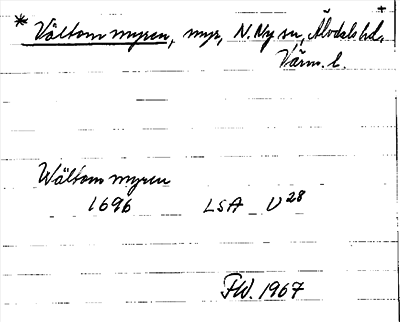 +
* Vältom myren, myr, N. Ny sn, Älvdals hd,
Värm. l.
Wältom myren
1696 LSA U 28
FW. 1967